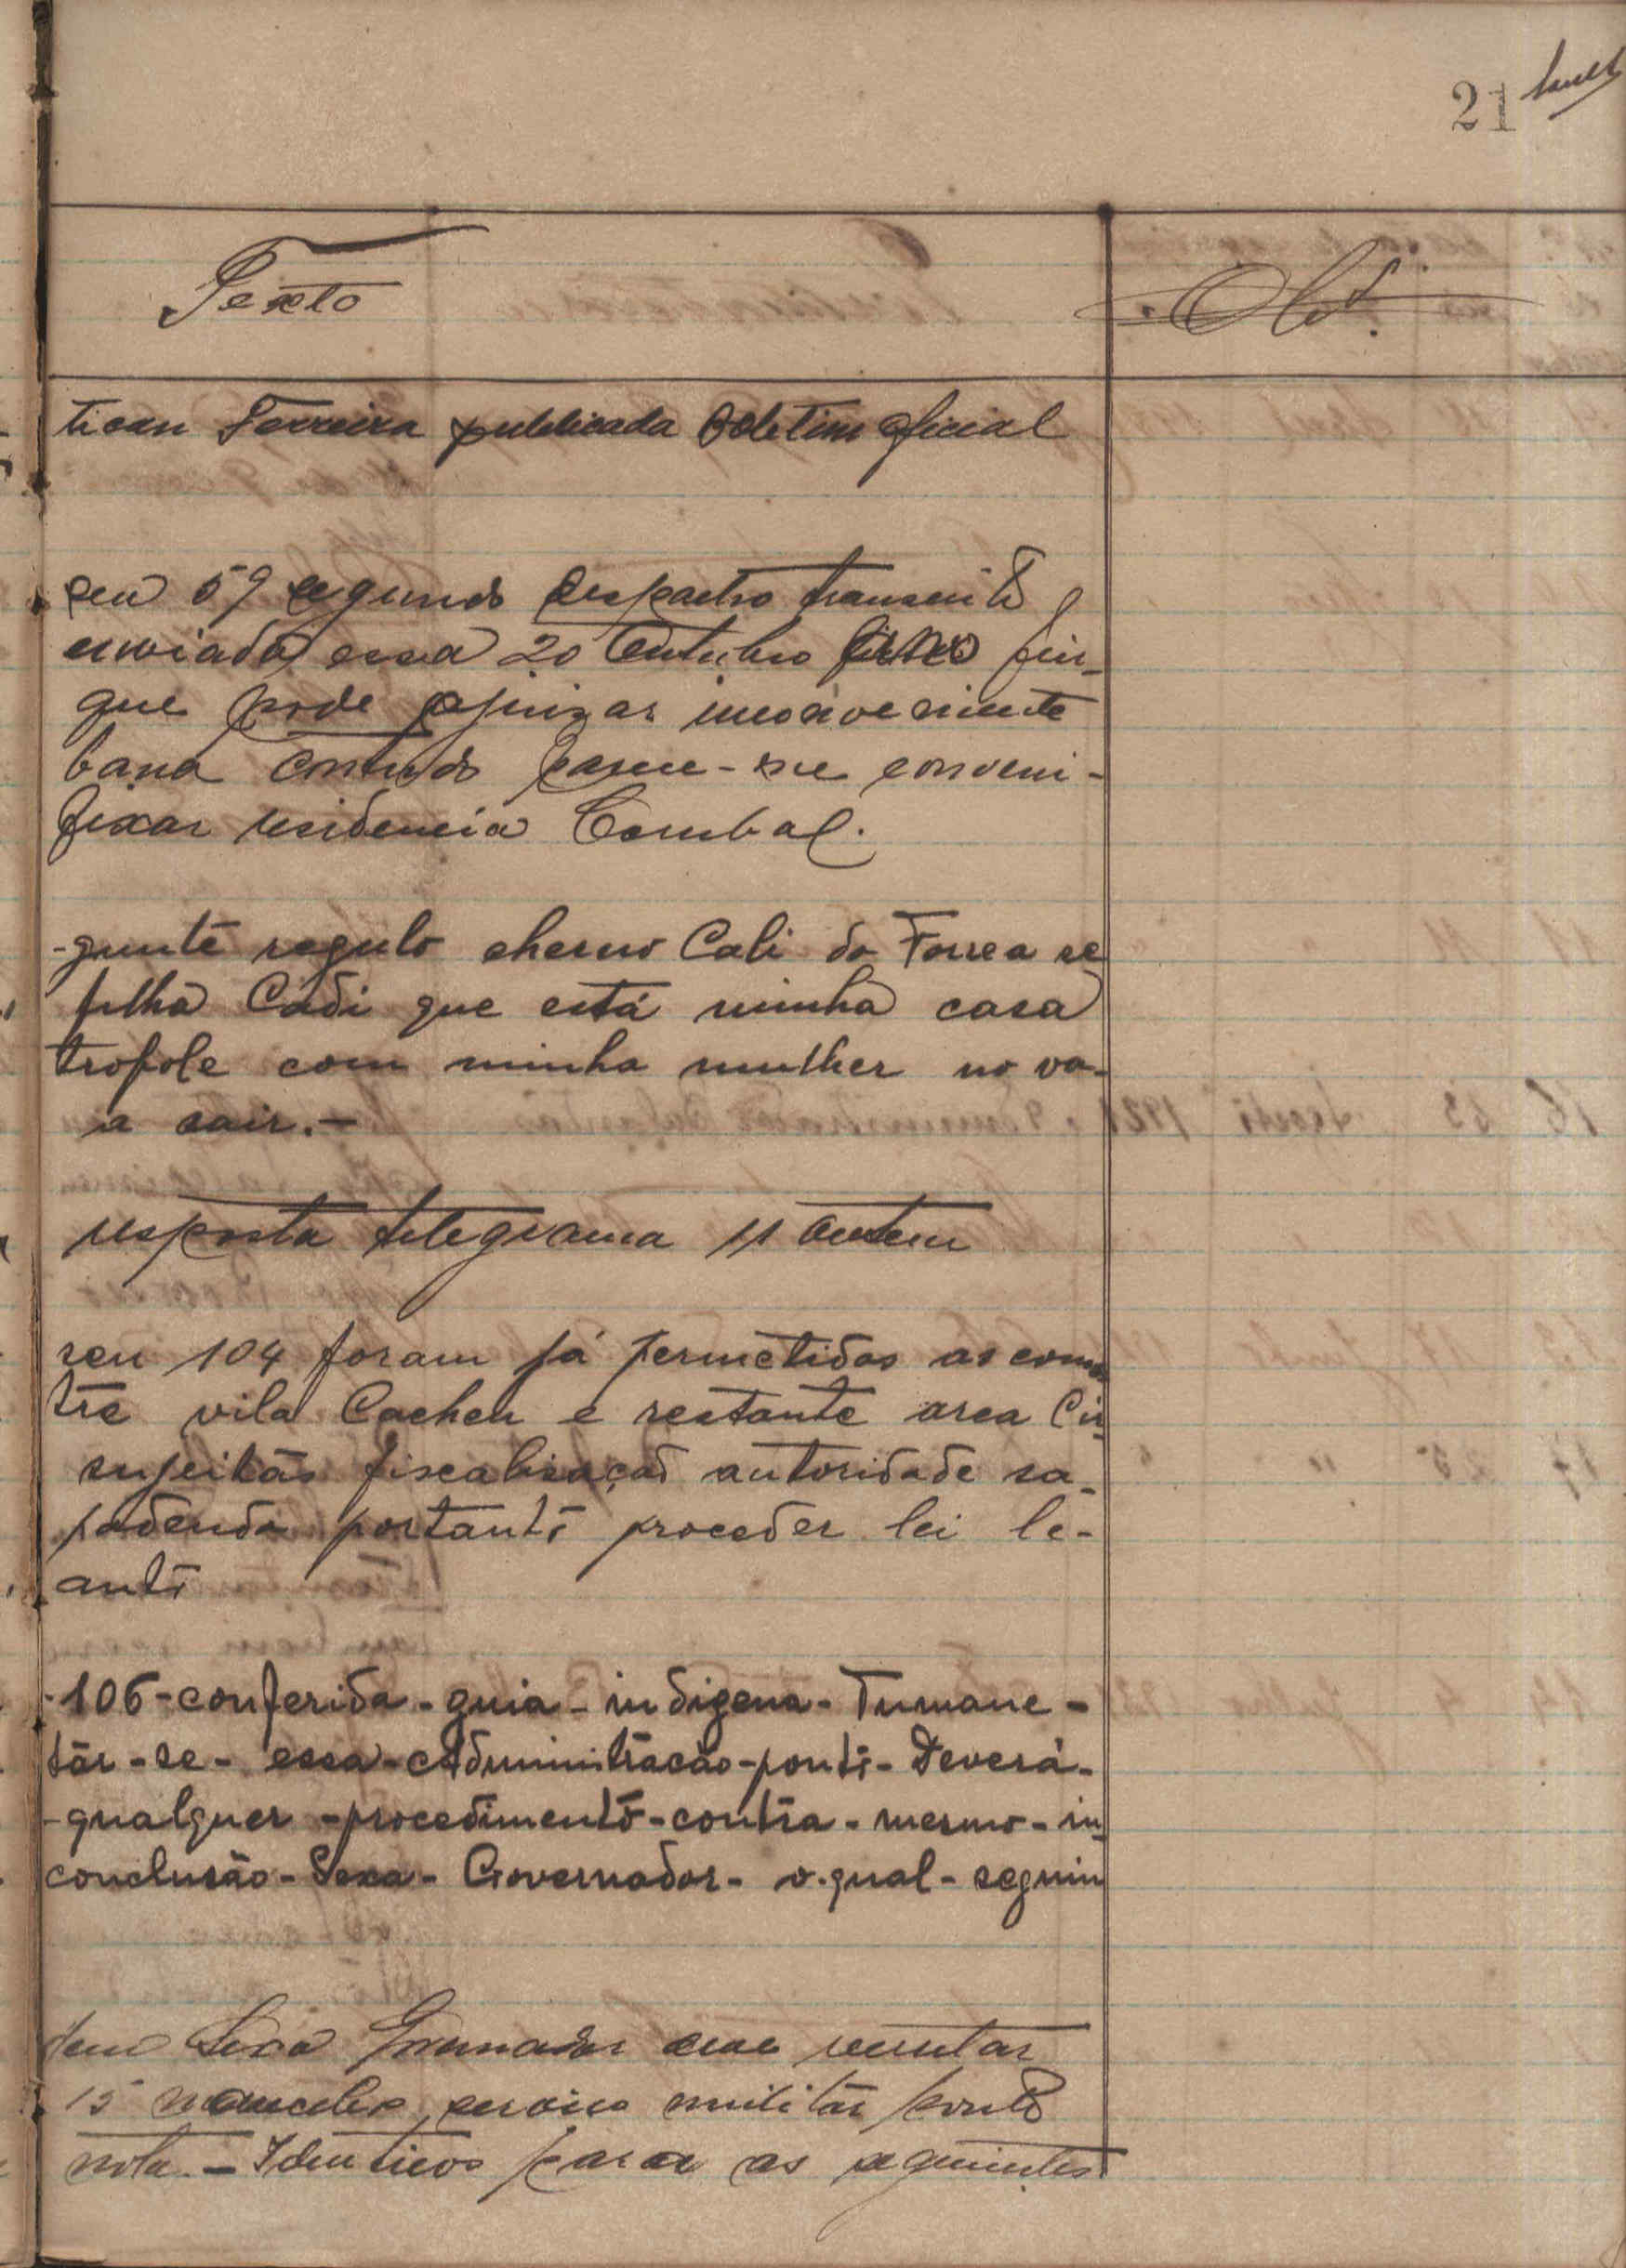 21
Texto
Obs.
ticar Ferreira publicada Boletim oficial
seu 59 segundo despacho transcrito
enviada essa 20 Outubro findo fin-
que pode ajuizar inconveniente
bana contudo parece-me conveni-
fixar residencia Corubal.
-guinte regulo cherno Cali do Forrea se
filha Cadi que está minha casa
tropole com minha mulher no va-
a sair.-
resposta telegrama 11 ontem
seu 104 foram já permetidas as com
tre vila Cacheu e restante area Cir-
sujeitas fiscalisação autoridade sa-
podendo portanto proceder lei le-
anto
-106-conferida-guia-indigena-Tumane-
tar-se-essa-Administração-ponto-Deverá-
-qualquer-procedimento-contra-mesmo-in-
conclusão-Sexa-Governador-o-qual-seguiu
Sexa Governador recrutar
15 mancebos serviço militar ponto
nota.- Identicos para as seguintes